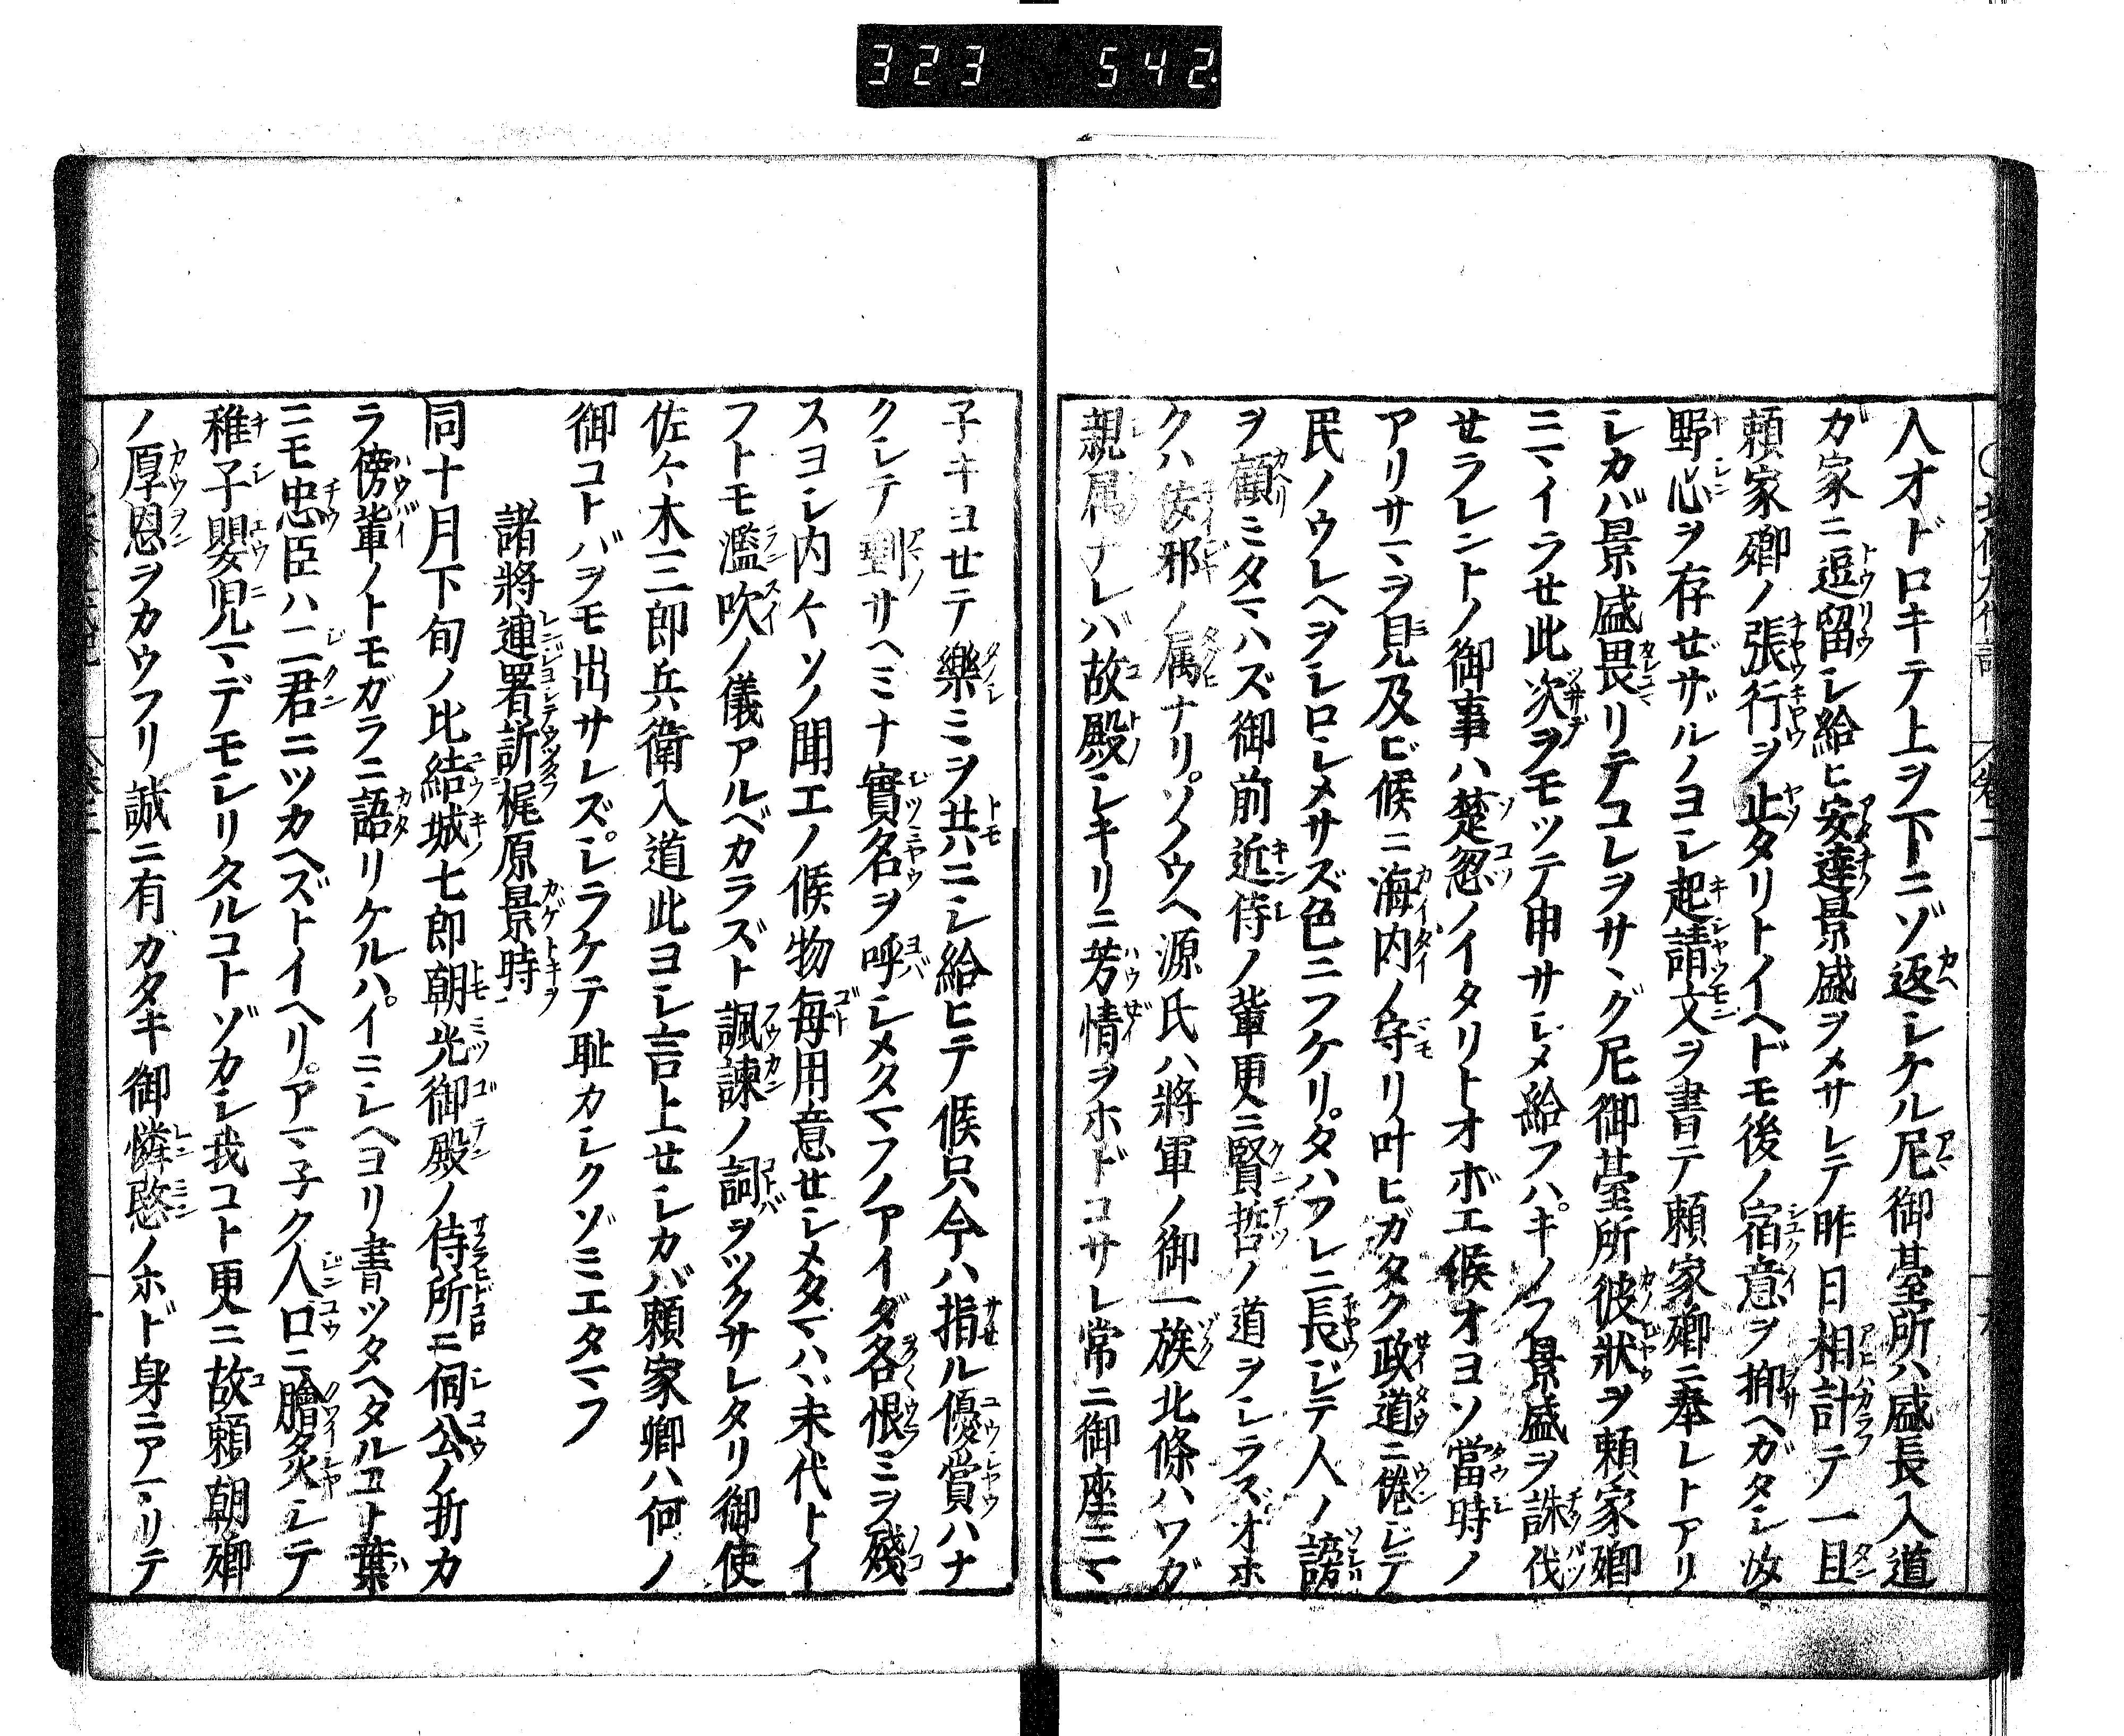 323 542.
人オドロキテ上ヲ下ニゾ返シケル尼御臺所ハ盛長入道
ガ家ニ逗留シ給ヒ安達景盛ヲメサレテ昨日相計テ一旦
頼家卿ノ張行ヲ止タリトイヘドモ後ノ宿意ヲ抑ヘガタシ汝
野心ヲ存ゼザルノヨシ起請文ヲ書テ頼家卿ニ奉レトアリ
シカバ景盛畏リテコレヲサヽグ尼御臺所彼狀ヲ頼家卿
ニマイラせ此次ヲモツテ申サシメ給フハ。キノフ景盛ヲ誅伐
せラレントノ御事ハ楚忽ノイタリトオボエ候オヨソ當時ノ
アリサマヲ見及ビ候ニ海内ノ守リ叶ヒガタク政道ニ倦ジテ
民ノウレヘヲシロシメサズ色ニフケリ。タハフレニ長ジテ人ノ謗
ヲ顧ミタマハズ御前近侍ノ輩更ニ賢哲ノ道ヲシラズオホ
クハ佞邪ノ属ナリ。ソノウヘ源氏ハ將軍ノ御一族北條ハワガ
親属ナレバ故殿シキリニ芳情ヲホドコサレ常ニ御座ニマ
子キヨせテ樂ミヲ共ニシ給ヒテ候只今ハ指ル優賞ハナ
クシテ剰サヘミナ實名ヲ呼シメタマフノアイダ各恨ミヲ殘
スヨシ内々ソノ聞エノ候物毎用意せシメタマハヾ末代トイ
フトモ濫吹ノ儀アルベカラズト諷諫ノ詞ヲツクサレタリ御使
佐々木三郎兵衛入道此ヨシ言上せシカバ頼家卿ハ何ノ
御コトバヲモ出サレズ。シラケテ耻カシクゾミエタマフ
諸將連署訴梶原景時
同十月下旬ノ比結城七郎朝光御殿ノ侍所ニ伺公ノ折カ
ラ傍輩ノトモガラニ語リケルハ。イニシヘヨリ書ツタヘタルコト葉
ニモ忠臣ハ二君ニツカヘズトイヘリ。アマ子ク人口ニ膾炙シテ
稚子嬰児マデモシリタルコトゾカシ我コト更ニ故頼朝卿
ノ厚恩ヲカウフリ誠ニ有ガタキ御憐愍ノホド身ニアマリテ